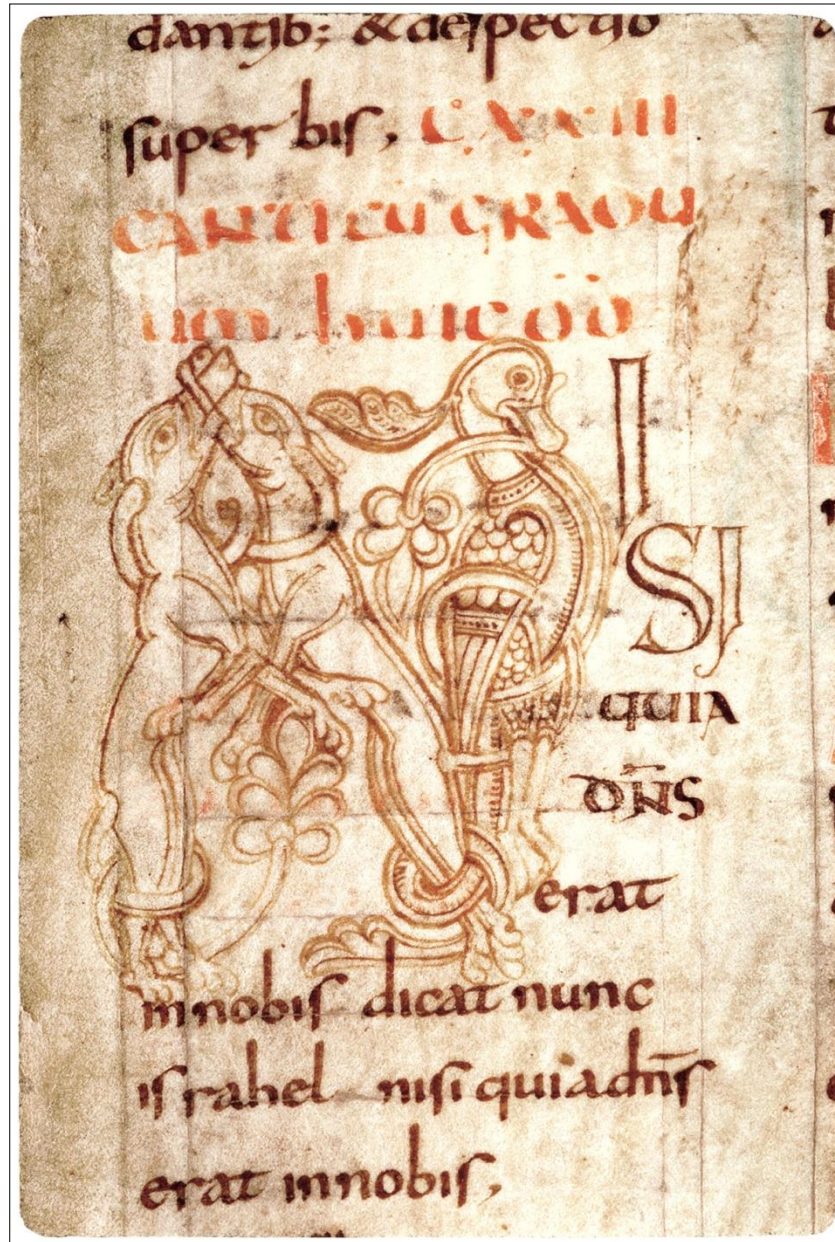 dantib; & despectio
superbis, CXXIII
CANTICU GRADU
um huic οδ
NI
SI
QUIA
DN̄S
erat
innobis dicat nunc
israhel nisi quia dn̄s
erat innobis,